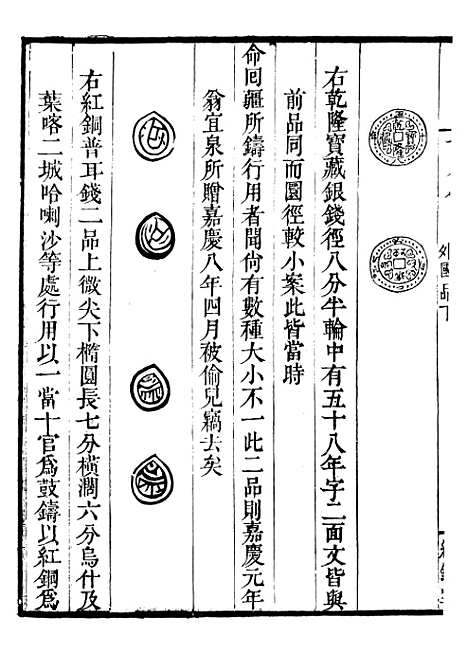 外國品下
右乾隆寶藏銀錢徑八分半輪中有五十八年字二面文皆與
前品同而圜徑較小案此皆當時
命回疆所鑄行用者聞尙有數種大小不一此二品則嘉慶元年
翁宜泉所贈嘉慶八年四月被偷兒竊去矣
右紅銅普耳錢二品上微尖下橢圓長七分橫濶六分烏什及
葉喀二城哈喇沙等處行用以一當十官爲鼓鑄以紅銅爲